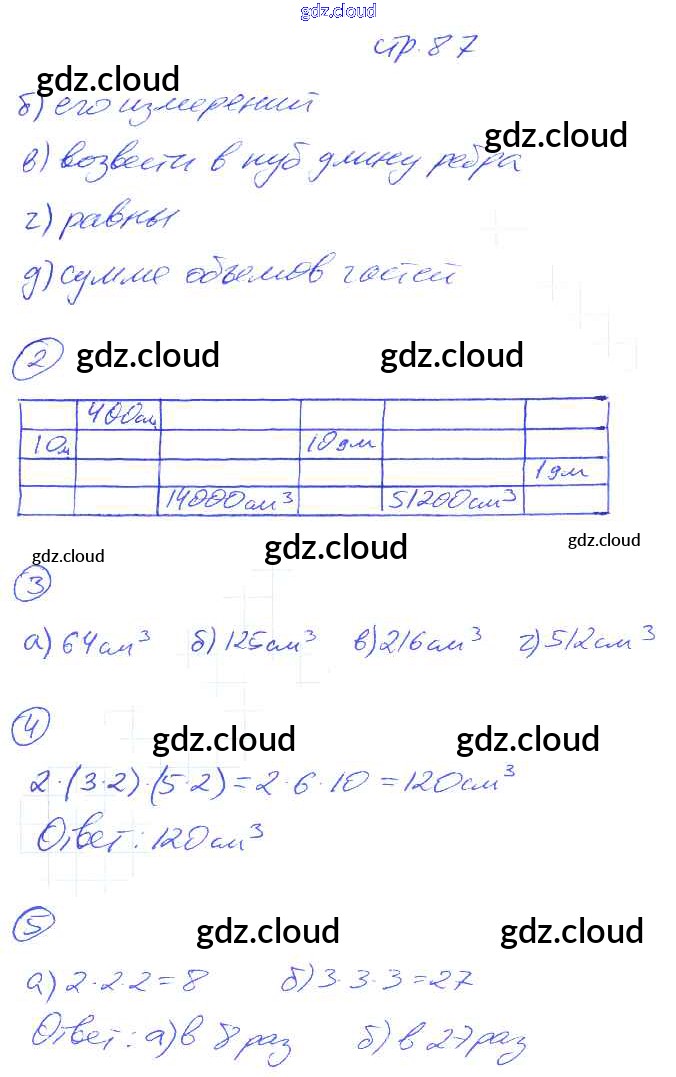 gdz.cloud
стр. 87
gdz.cloud
б) его измерений
gdz.cloud
в) возвести в куб длину ребра
г) равны
д) сумме объемов частей
2 gdz.cloud gdz.cloud
400см
10м 10дм
1дм
14000см³ 51200см³
gdz.cloud gdz.cloud gdz.cloud
3
а) 64см³ б) 125см³ в) 216см³ г) 512см³
4
gdz.cloud gdz.cloud
2·(3·2)·(5·2)=2·6·10=120см³
Ответ: 120см³
5 gdz.cloud gdz.cloud
а) 2·2·2=8 б) 3·3·3=27
Ответ: а) в 8 раз б) в 27 раз